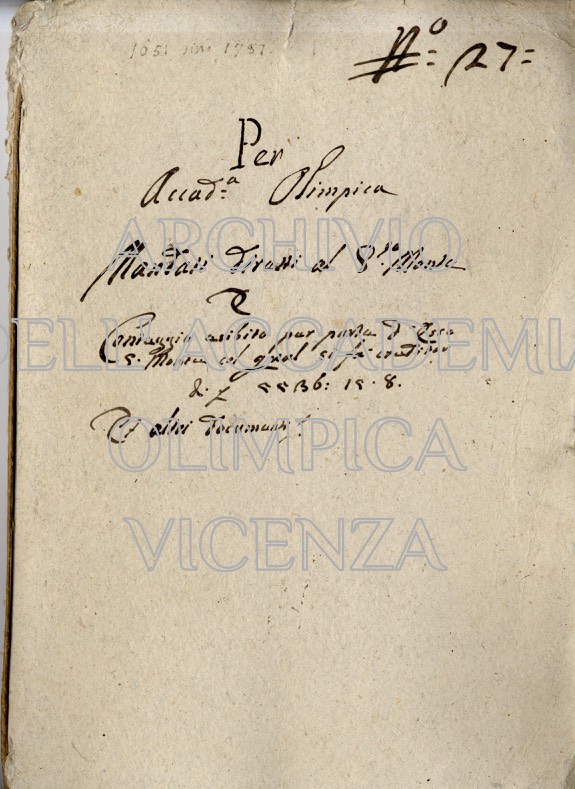 1651 sin 1751
N.º = 27 =
Per
Accad.ª Olimpica
Mandati diretti al S.to Monte
E
Conteggio esibito per parte di esso
S. Monte col qual si fa creditor
di
Et altri documenti
ARCHIVIO
DELL'ACCADEMIA
OLIMPICA
VICENZA